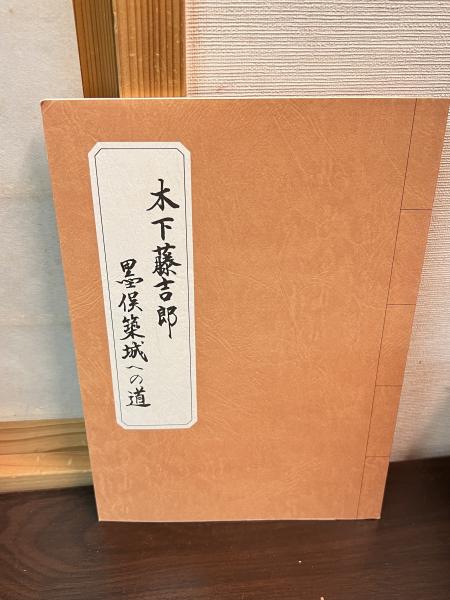 木下藤吉郎
墨俣築城への道